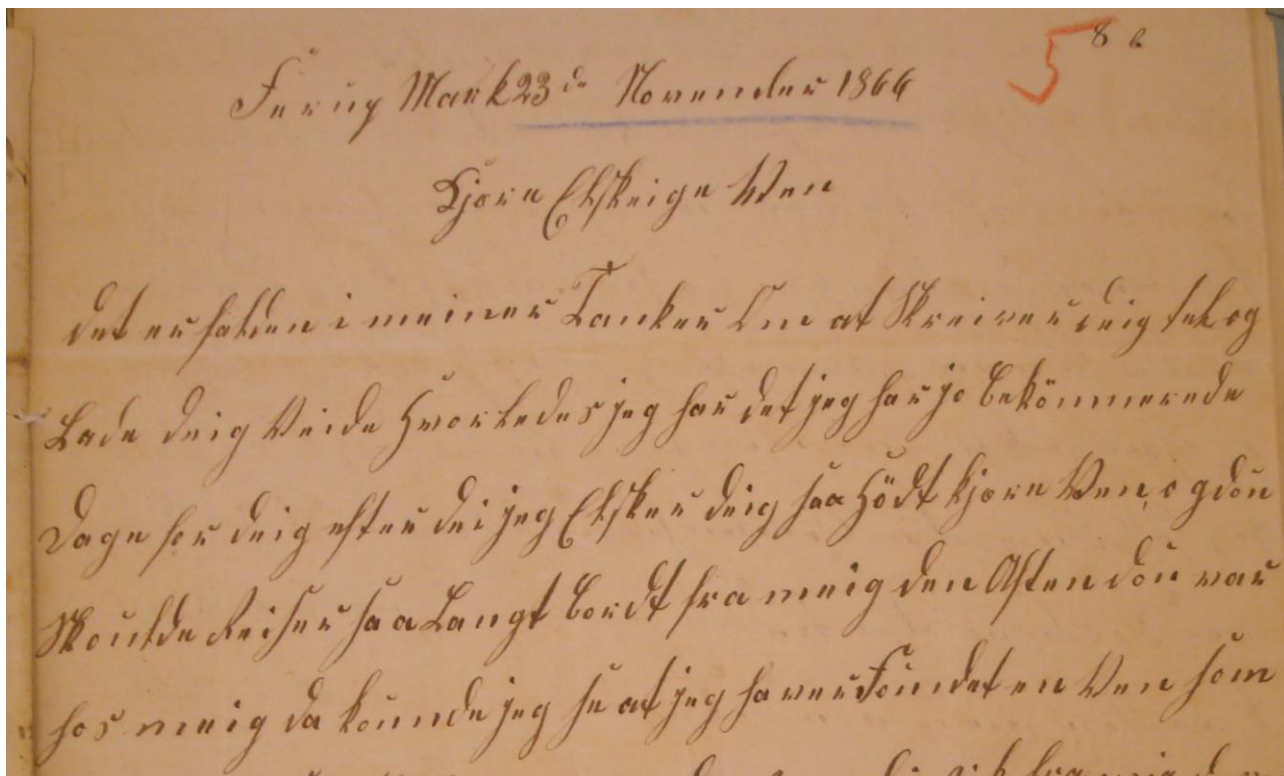 5 8 b
Ferup Mark 23de November 1866
Kjære Elskeige Ven
det er falden i meiner Tanker Om at Skreiver deig tel og
Lade deig Veide Hvorledes jeg har det jeg har jo bekömmerede
Dage for deig efter dei jeg Elsker deig saa Hödt kjære Ven og dou
Skoulde Reiser saa Langt bordt fra meig den Aften dou var
hos meig da kounde jeg se at jeg haver Foundet en Ven som